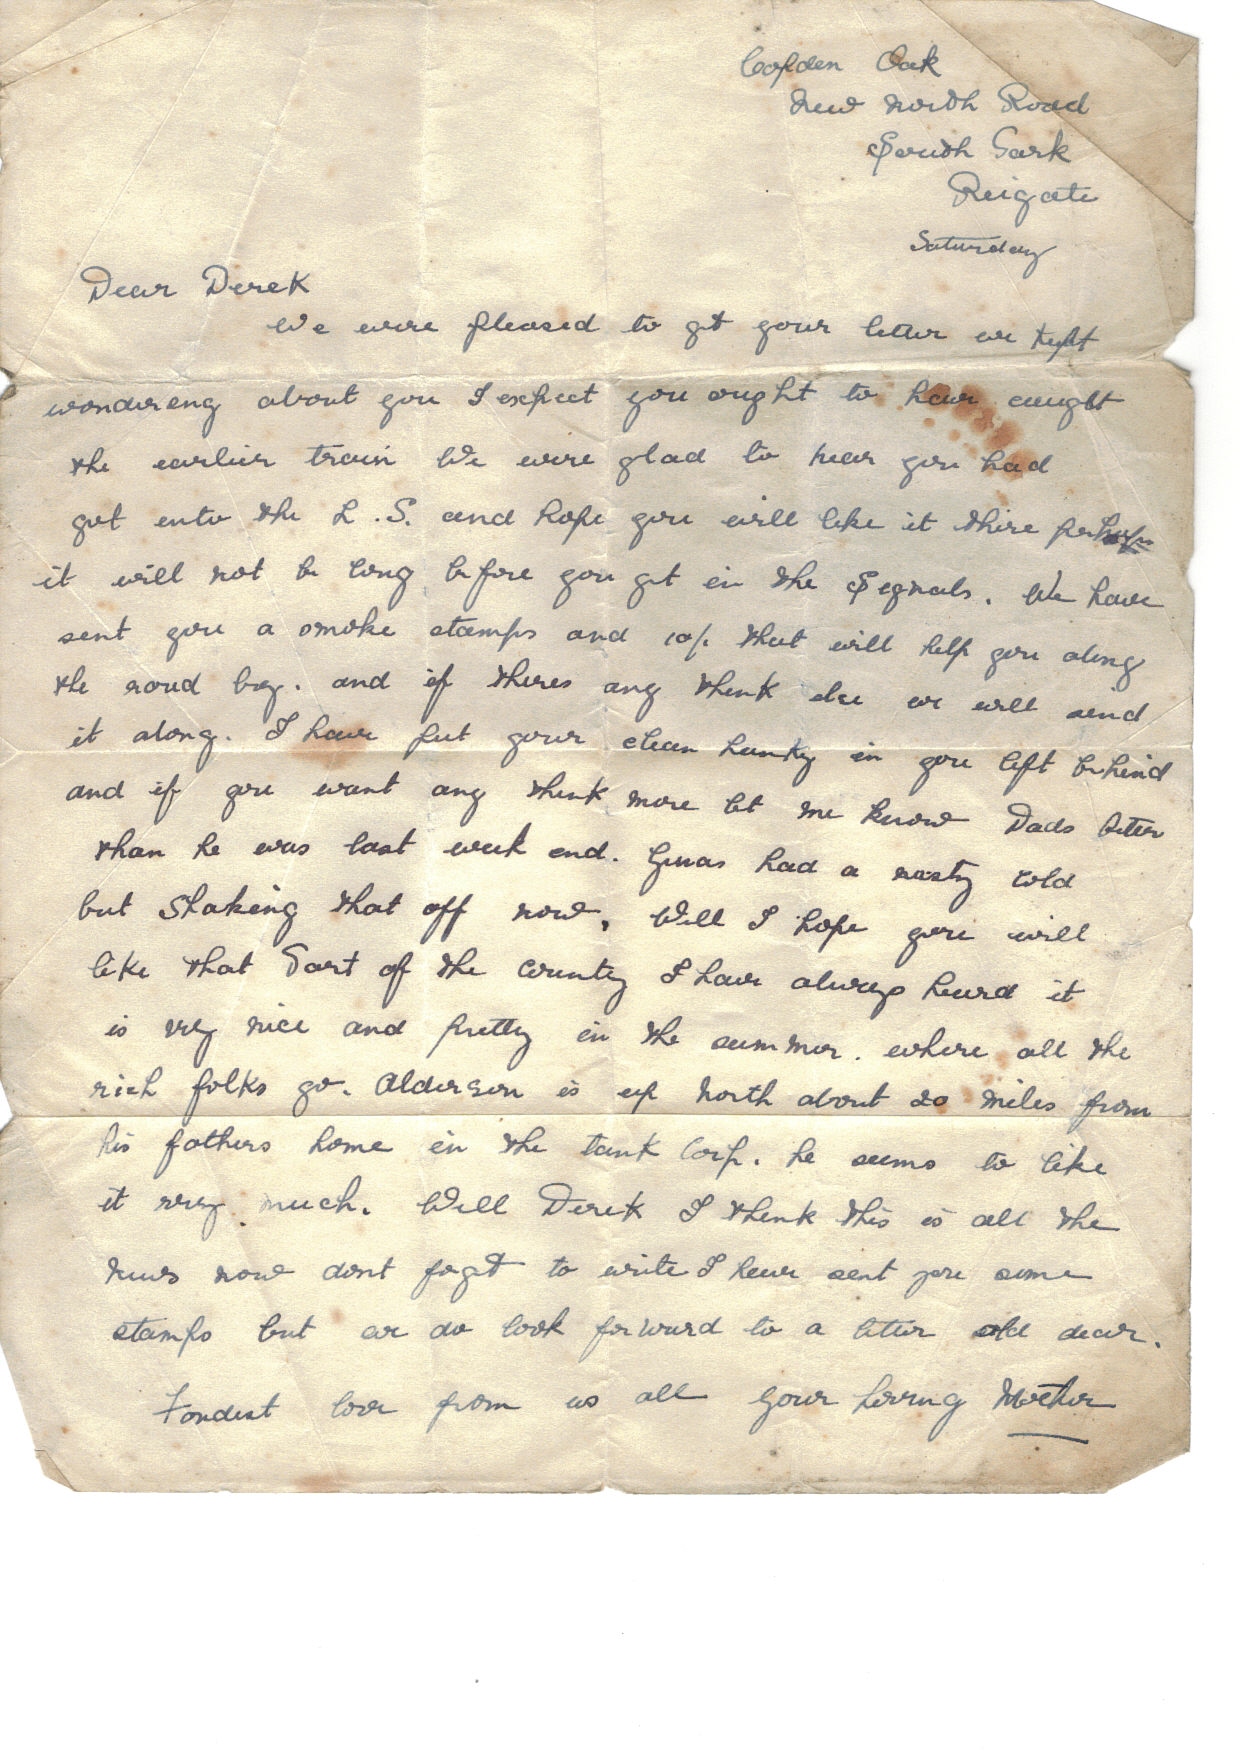 Copden Oak
New North Road
South Park
Reigate
Saturday
Dear Derek
We were pleased to get your letter we kept
wondering about you I expect you ought to have caught
the earlier train We were glad to hear you had
got into the L.S. and hope you will like it there perhaps
it will not be long before you get in the Signals. We have
sent you a smoke stamps and 10/- that will help you along
the road boy. and if theres any think else we will send
it along. I have put your clean hanky in you left behind
and if you want any think more let me know Dads better
than he was last week end. has had a nasty cold
but Shaking that off now, Well I hope you will
like that Part of the country I have always heard it
is very nice and pretty in the summer. where all the
rich folks go. Alderson is up North about 20 miles from
his fathers home in the tank Corp. he seems to like
it very much. Well Derek I think this is all the
news now dont foget to write I have sent you some
stamps but we do look forward to a letter old dear.
Fondest love from us all Your loving Mother